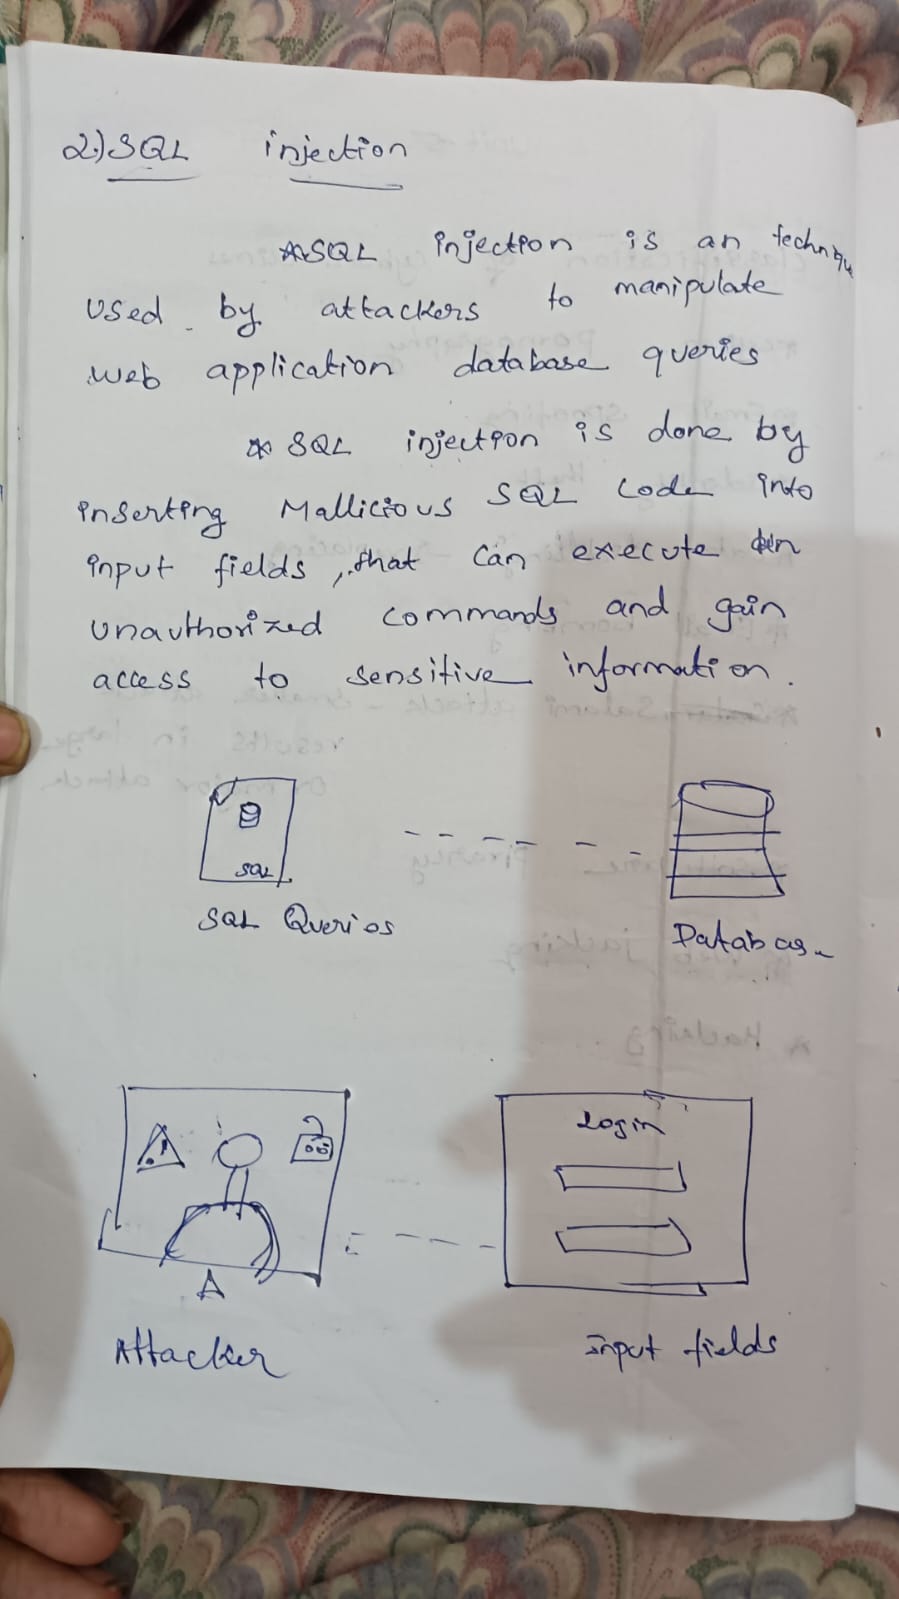 2.) SQL injection
* SQL injection is an techniqu
used by attackers to manipulate
web application database queries
* SQL injection is done by
inserting Mallicious SQL Code into
input fields, that can execute
unauthorized commands and gain
access to sensitive information.
SQL
SQL Queries
Databas
Login
A
Attacker
input fields